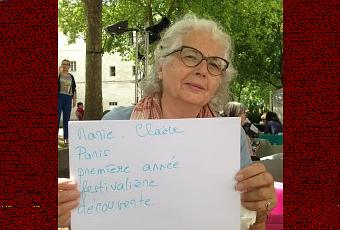 Marie - Claire
Paris
première année
festivalière
découverte